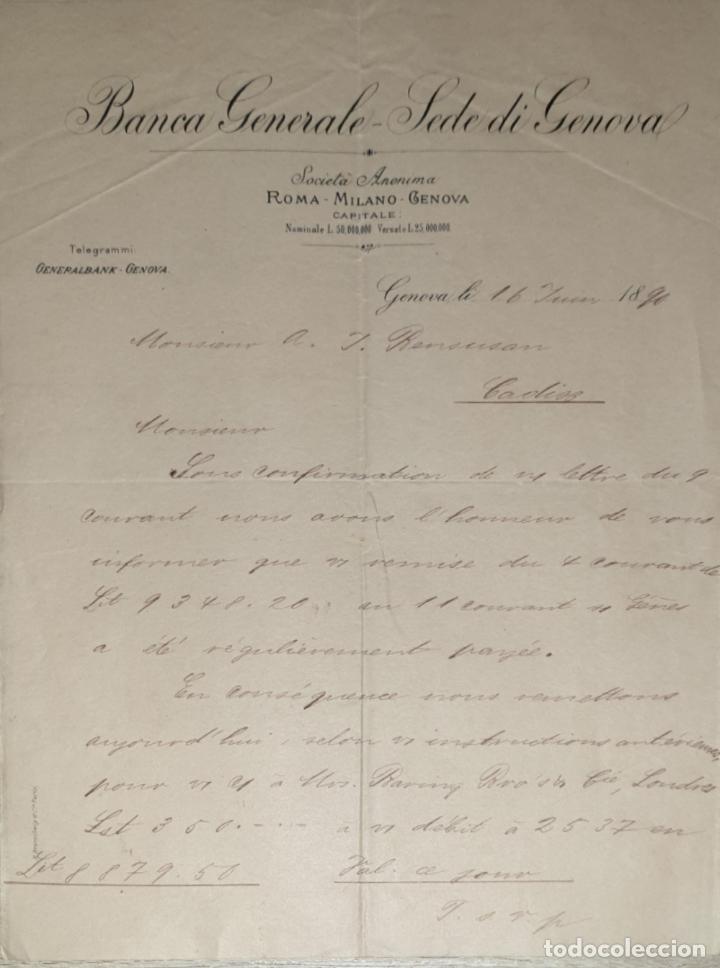 Banca Generale - Sede di Genova
Società Anonima
ROMA - MILANO - GENOVA
CAPITALE:
Nominale L. 50,000,000 Versato L. 25,000,000
Telegrammi:
GENERALBANK - GENOVA.
Genova li 16 Juin 1890
Monsieur A. J. Bensusan
Cadix
Monsieur
Sous confirmation de v/ lettre du 9
courant nous avons l'honneur de vous
informer que v/ remise du 4 courant de
Lit 9348.20 au 11 courant s/ Gênes
a été régulièrement payée.
En conséquence nous remettons
aujourd'hui, selon v/ instructions antérieures,
pour v/ c/ à Mrs. Baring Bro's & Cie, Londres
Lst 350.--- à v/ débit à 2537 en
Lit 8879.50 Val. ce jour
T. s. v. p
todocoleccion